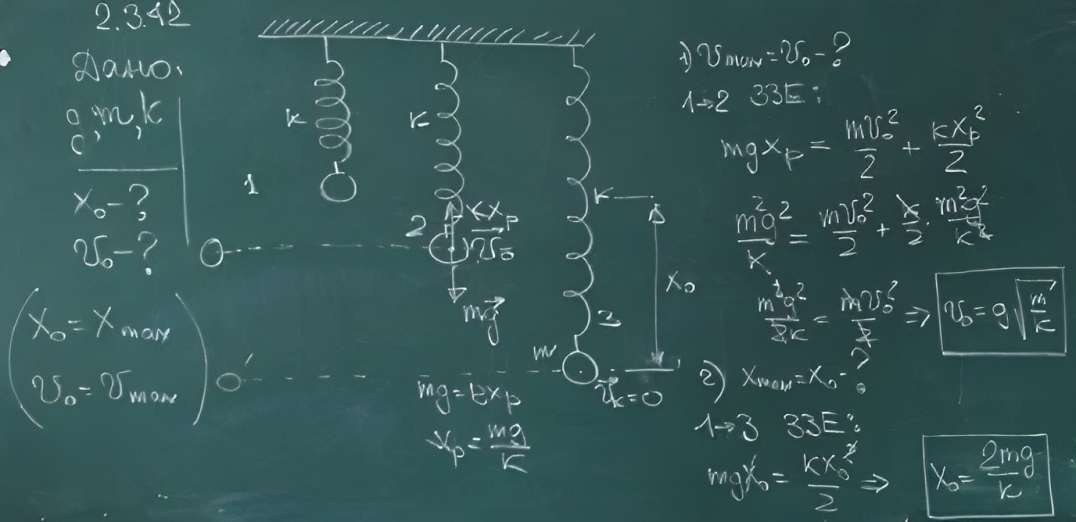 2.3.42
Дано:
g, m, k
x₀ - ?
v₀ - ?
(x₀ = x max
v₀ = v max)
1
k
k
2
kxₚ
v₀
mg
O
O'
mg = kxₚ
xₚ = mg/k
k
x₀
3
m
vₖ = 0
1) v max = v₀ - ?
1→2 ЗЗЕ:
mgxₚ = mv₀²/2 + kxₚ²/2
m²g²/k = mv₀²/2 + k/2 · m²g²/k²
m²g²/2k = mv₀²/2 ⇒ v₀ = g√(m/k)
2) x max = x₀ - ?
1→3 ЗЗЕ:
mgx₀ = kx₀²/2 ⇒ x₀ = 2mg/k